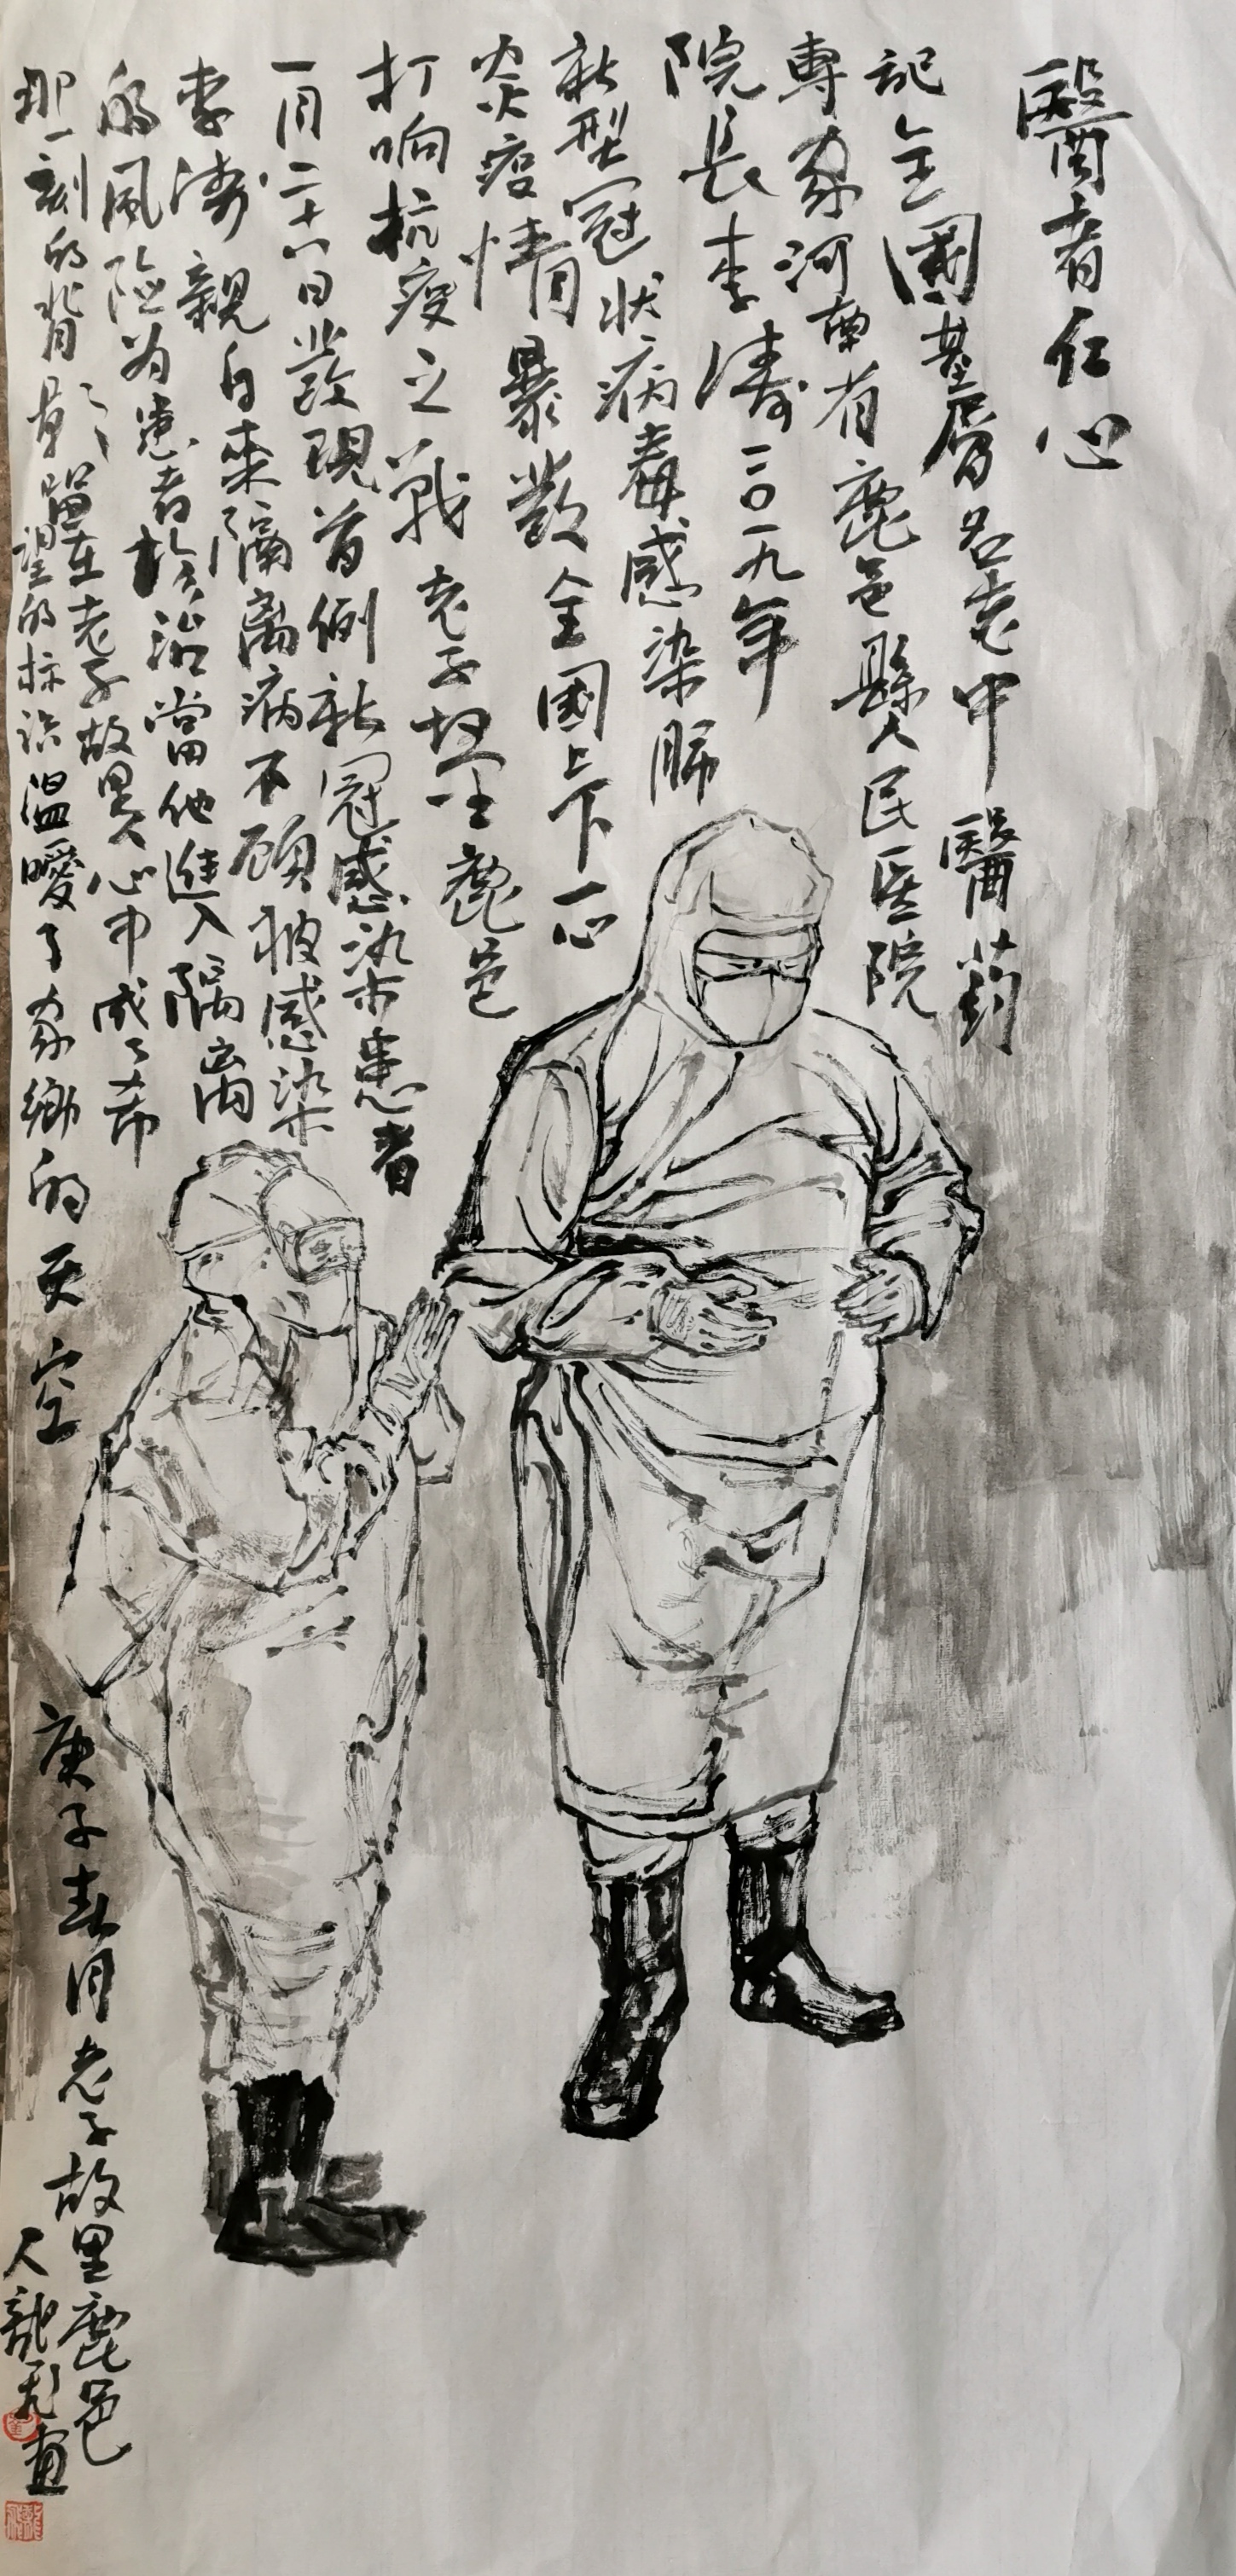 醫者仁心
記全國基層名老中醫葯
專家河南省鹿邑縣人民医院
院長李濤二〇一九年
新型冠狀病毒感染肺
炎疫情暴發全國上下一心
打响抗疫之戰老子故里鹿邑
一月二十六日發現首例新冠感染患者
李濤親自来隔离病不顾被感染
的風险为患者於治當他進入隔离
那一刻的背影留在老子故里人心中成了希
望的标识温暖了家鄉的天空
庚子春月老子故里鹿邑
人龍飛画